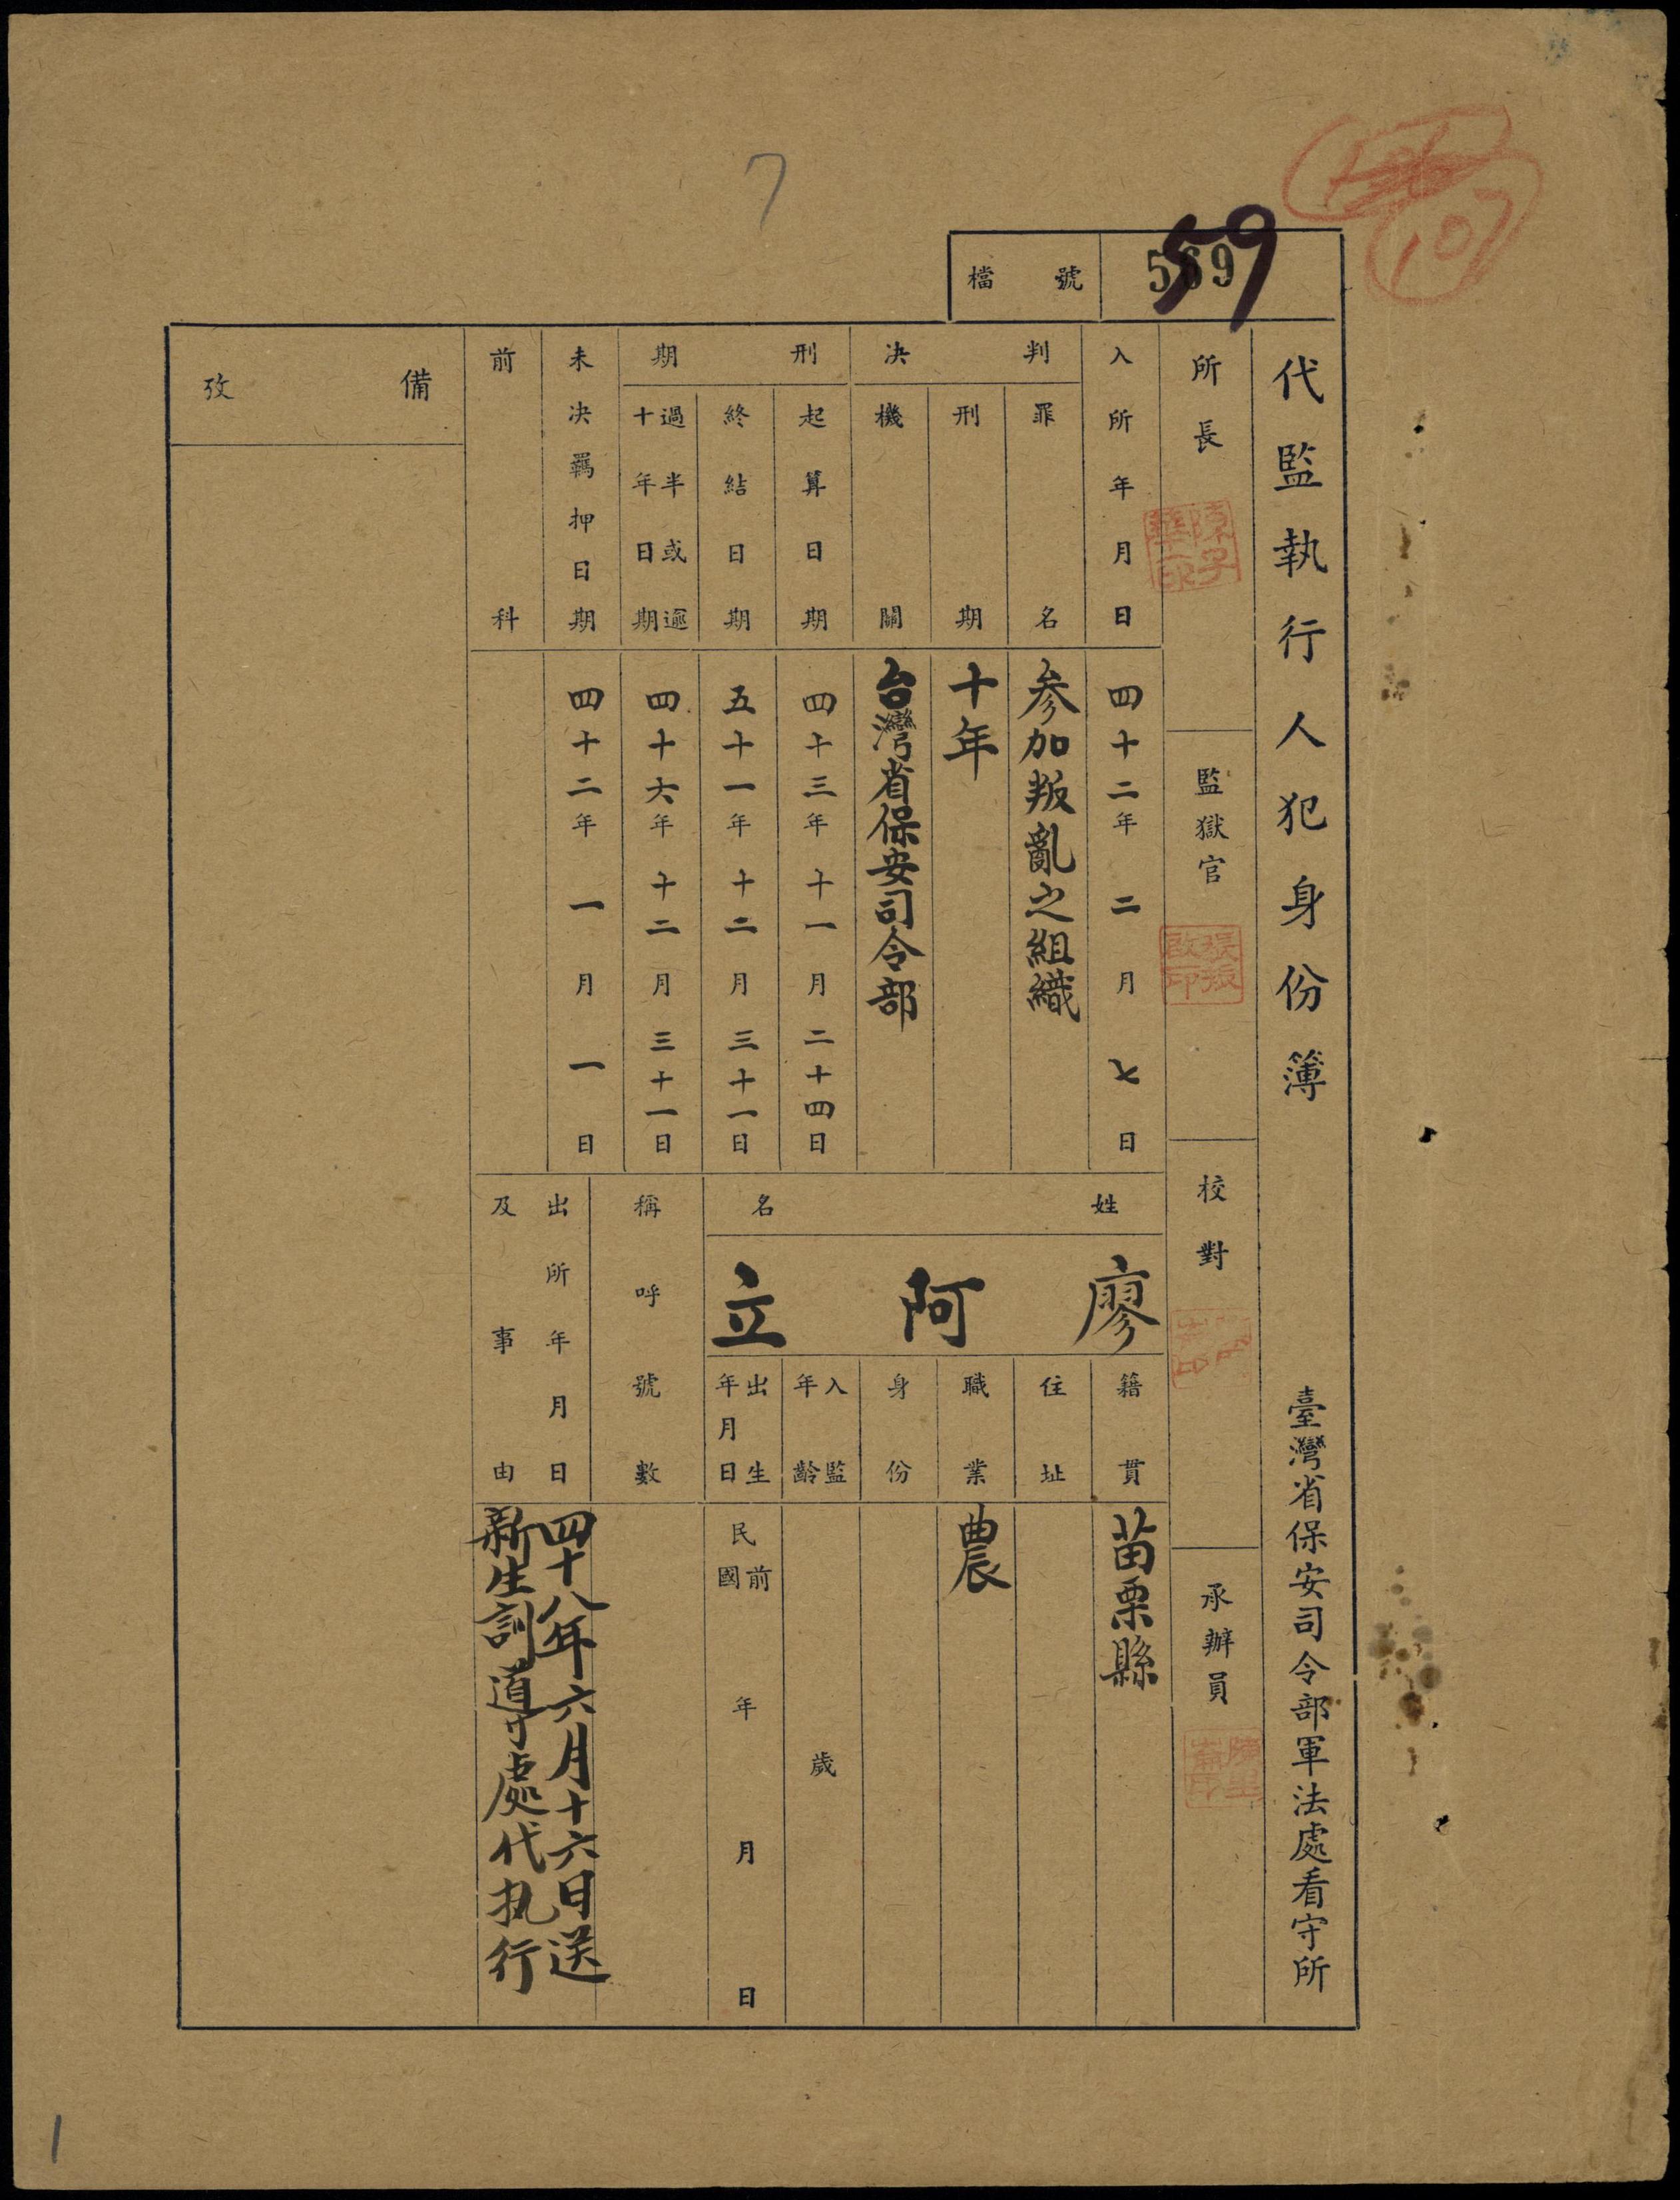 7
107
檔號
569
59
代監執行人犯身份簿
臺灣省保安司令部軍法處看守所
所長
監獄官
校對
承辦員
入所年月日
四十二年二月七日
判決
罪名
參加叛亂之組織
刑期
十年
機關
台灣省保安司令部
刑期
起算日期
四十三年十一月二十四日
終結日期
五十一年十二月三十一日
過半或逾
十年日期
四十六年十二月三十一日
未決羈押日期
四十二年一月一日
前科
姓名
廖阿立
籍貫
苗栗縣
住址
職業
農
身份
入監
年齡
歲
出生
年月日
民國前
年月日
稱呼號數
出所年月日
及事由
四十八年六月十六日送
新生訓導處代执行
備攷
1